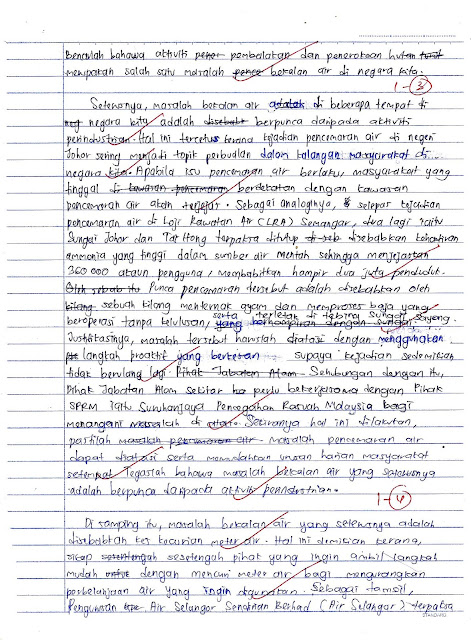 Benarlah bahawa aktiviti pembalakan dan penerokaan hutan
merupakan salah satu masalah bekalan air di negara kita.
1-3
Seterusnya, masalah bekalan air di beberapa tempat di
negara kita adalah berpunca daripada aktiviti
perindustrian. Hal ini tercetus kerana kejadian pencemaran air di negeri
Johor sering menjadi topik perbualan dalam kalangan masyarakat di
negara kita. Apabila isu pencemaran air berlaku, masyarakat yang
tinggal di berdekatan dengan kawasan
pencemaran air akan terjejas. Sebagai analoginya, selepas kejadian
pencemaran air di Loji Rawatan Air (LRA) Semangar, dua lagi iaitu
Sungai Johor dan Tai Hong terpaksa ditutup disebabkan kehadiran
ammonia yang tinggi dalam sumber air mentah sehingga menjejaskan
360 000 ataun pengguna / membabitkan hampir dua juta penduduk.
Punca pencemaran tersebut adalah disebabkan oleh
sebuah kilang menternak ayam dan memproses baja yang
beroperasi tanpa kelulusan, serta terletak di tebing Sungai Sayong.
Justifikasinya, masalah tersebut haruslah diatasi dengan menggunakan
langkah proaktif yang berkesan supaya kejadian sedemikian
tidak berulang lagi. Sehubungan dengan itu,
Pihak Jabatan Alam Sekitar perlu bekerjasama dengan Pihak
SPRM iaitu Suruhanjaya Pencegahan Rasuah Malaysia bagi
menangani masalah di Sekiranya hal ini dilakukan,
pastilah masalah pencemaran air
dapat diatasi serta memudahkan urusan harian masyarakat
setempat. Tegaslah bahawa masalah bekalan air yang seterusnya
adalah berpunca daripada aktiviti perindustrian.
1-4
Di samping itu, masalah bekalan air yang seterusnya adalah
disebabkan kes kecurian meter air. Hal ini demikian kerana,
sikap sesetengah pihak yang ingin ambil langkah
mudah dengan mencuri meter air bagi mengurangkan
perbelanjaan air yang ingin digunakan. Sebagai tamsil,
Pengurusan Air Selangor Sendirian Berhad (Air Selangor) terpaksa